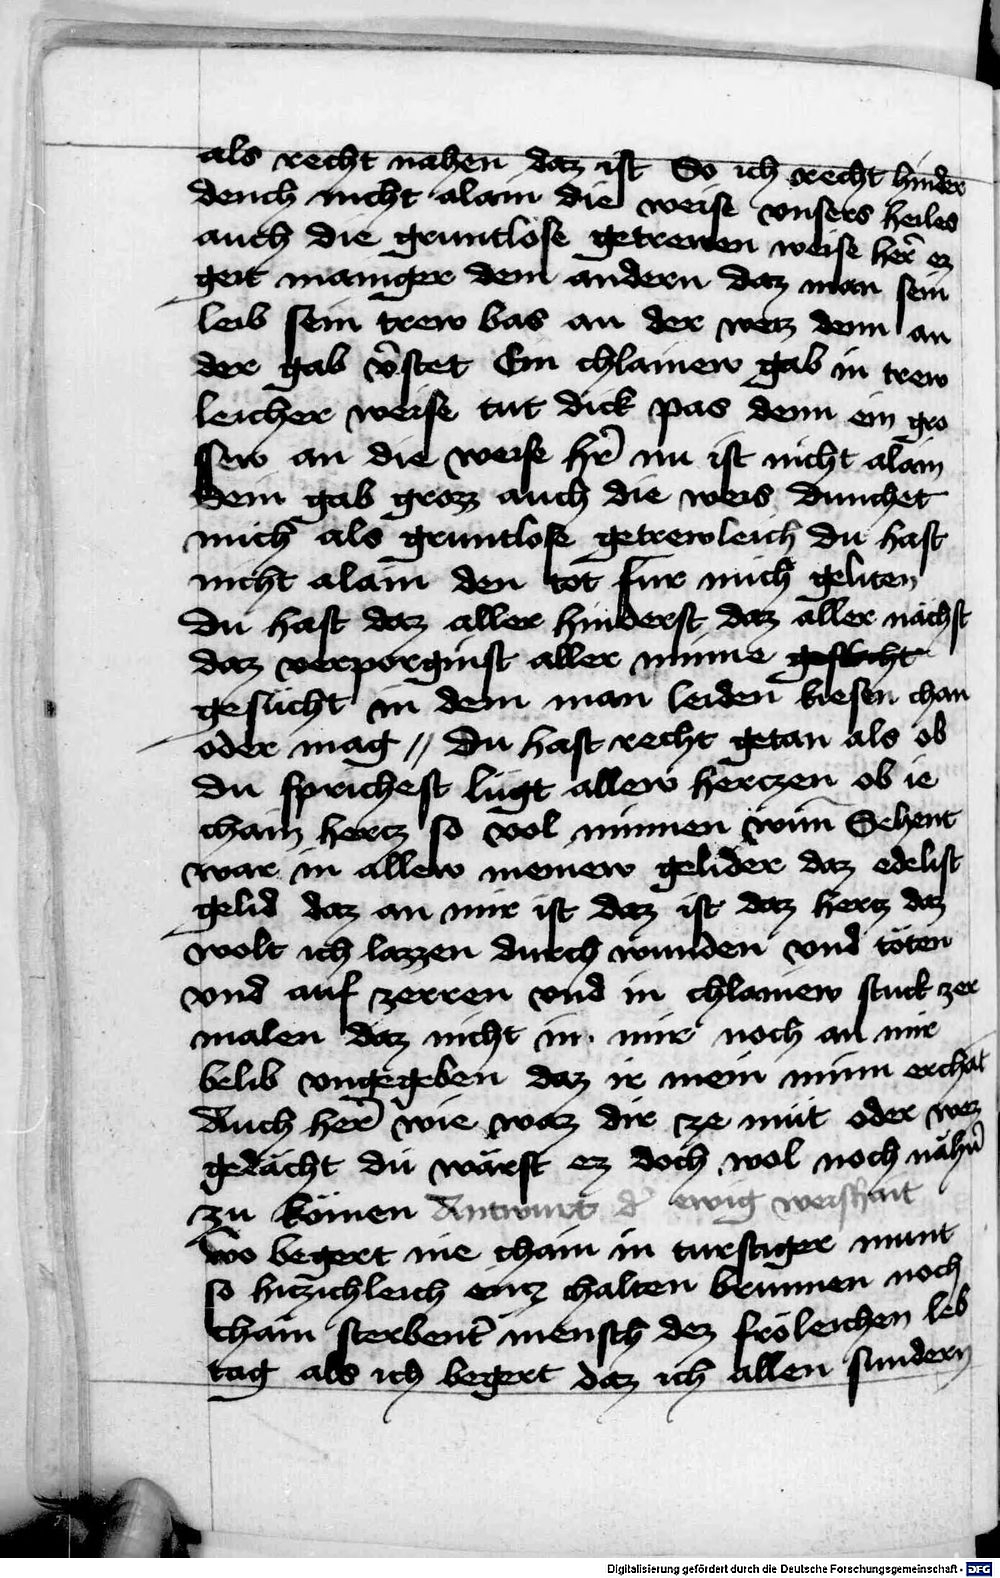 als recht nahen daz ist So ich recht hinder
dench nicht alain die weise vnsers heiles
auch die gruntlose getrewen weise her̄ ez
geit maniger dem andern daz man sein
leib sein trew bas an der weiz denn an
der gab v̄stet Ein chlainew gab in trew
leicher weise tut dick pas denn ein gro
ssew an die weise hr̄ nu ist nicht alain
dein gab grozz auch die weis dunchet
mich als gruntlose getrewleich du hast
nicht alain den tot fur mich geliten
du hast daz aller hinderst daz aller nächst
daz verporginst aller minne
gesücht in dem man leiden kiesen chan
oder mag // du hast recht getan als ob
du sprichest lügt allew hertzen ob ie
chain hertz so vol minnen wurd Sehent
war in allew meinew gelider daz edelist
gelid daz an mir ist daz ist daz hertz daz
wolt ich lazzen durch wunden vnd töten
vnd auf zerren vnd in chlainew stuck zer
malen daz nicht in mir noch an mir
belib vngegeben daz ir mein minn erchat
Auch her̄ wie waz dir ze müt oder wez
gedächt du wärst ez doch wol noch nähn̄
zu kömen Antwurt d̄ ewig weishait
wo begert nie chain in turstiger munt
so hitzichleich entz chalten brunnen noch
chain sterbent̄ mensch dez fröleichen leb
tag als ich begert daz ich allen sundern
Digitalisierung gefördert durch die Deutsche Forschungsgemeinschaft - DFG